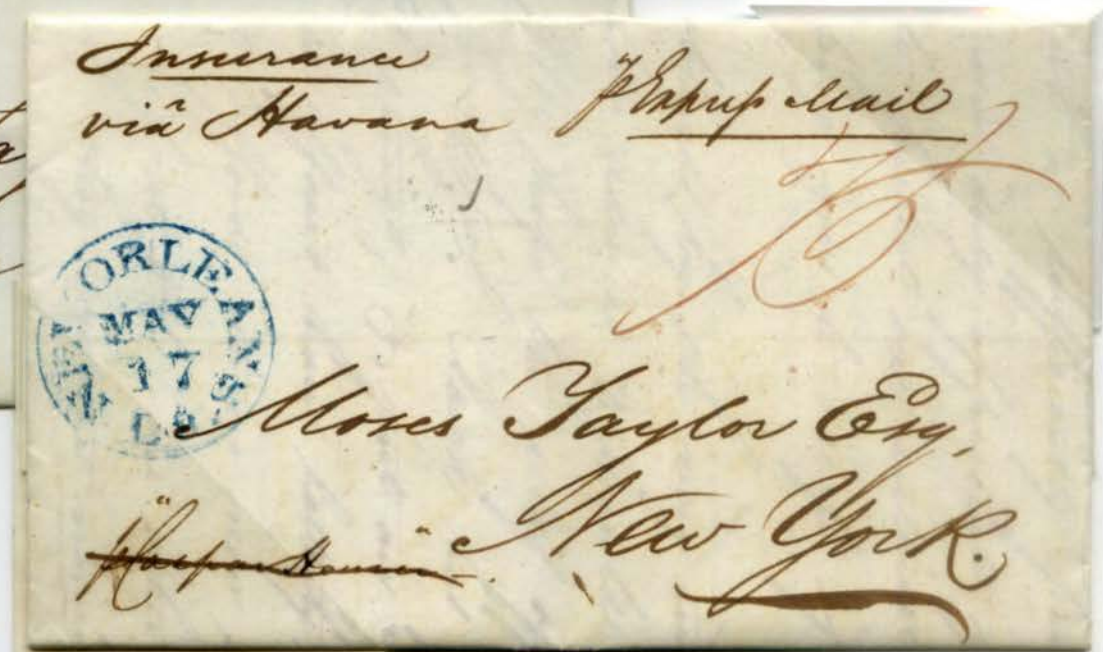 Insurance
viâ Havana
Express Mail
NEW ORLEANS
MAY
17
La.
Moses Taylor Esq,
New York.